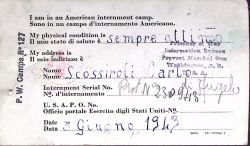 P. W. Camps N° 127
I am in an American internment camp.
Sono in un campo d'internamento Americano.
My physical condition is
Il mio stato di salute è sempre ottimo
Prisoner of War
Information Bureau
Provost Marshal Gen
Washington, D. C.
My address is
Il mio indirizzo è
Name
Nome Scossiroli Carlo
Internment Serial No.
No. d'internamento
U. S. A. P. O. No.
Official portale Esercito degli Stati Uniti-No.
Date
Data 3 Giugno 1943